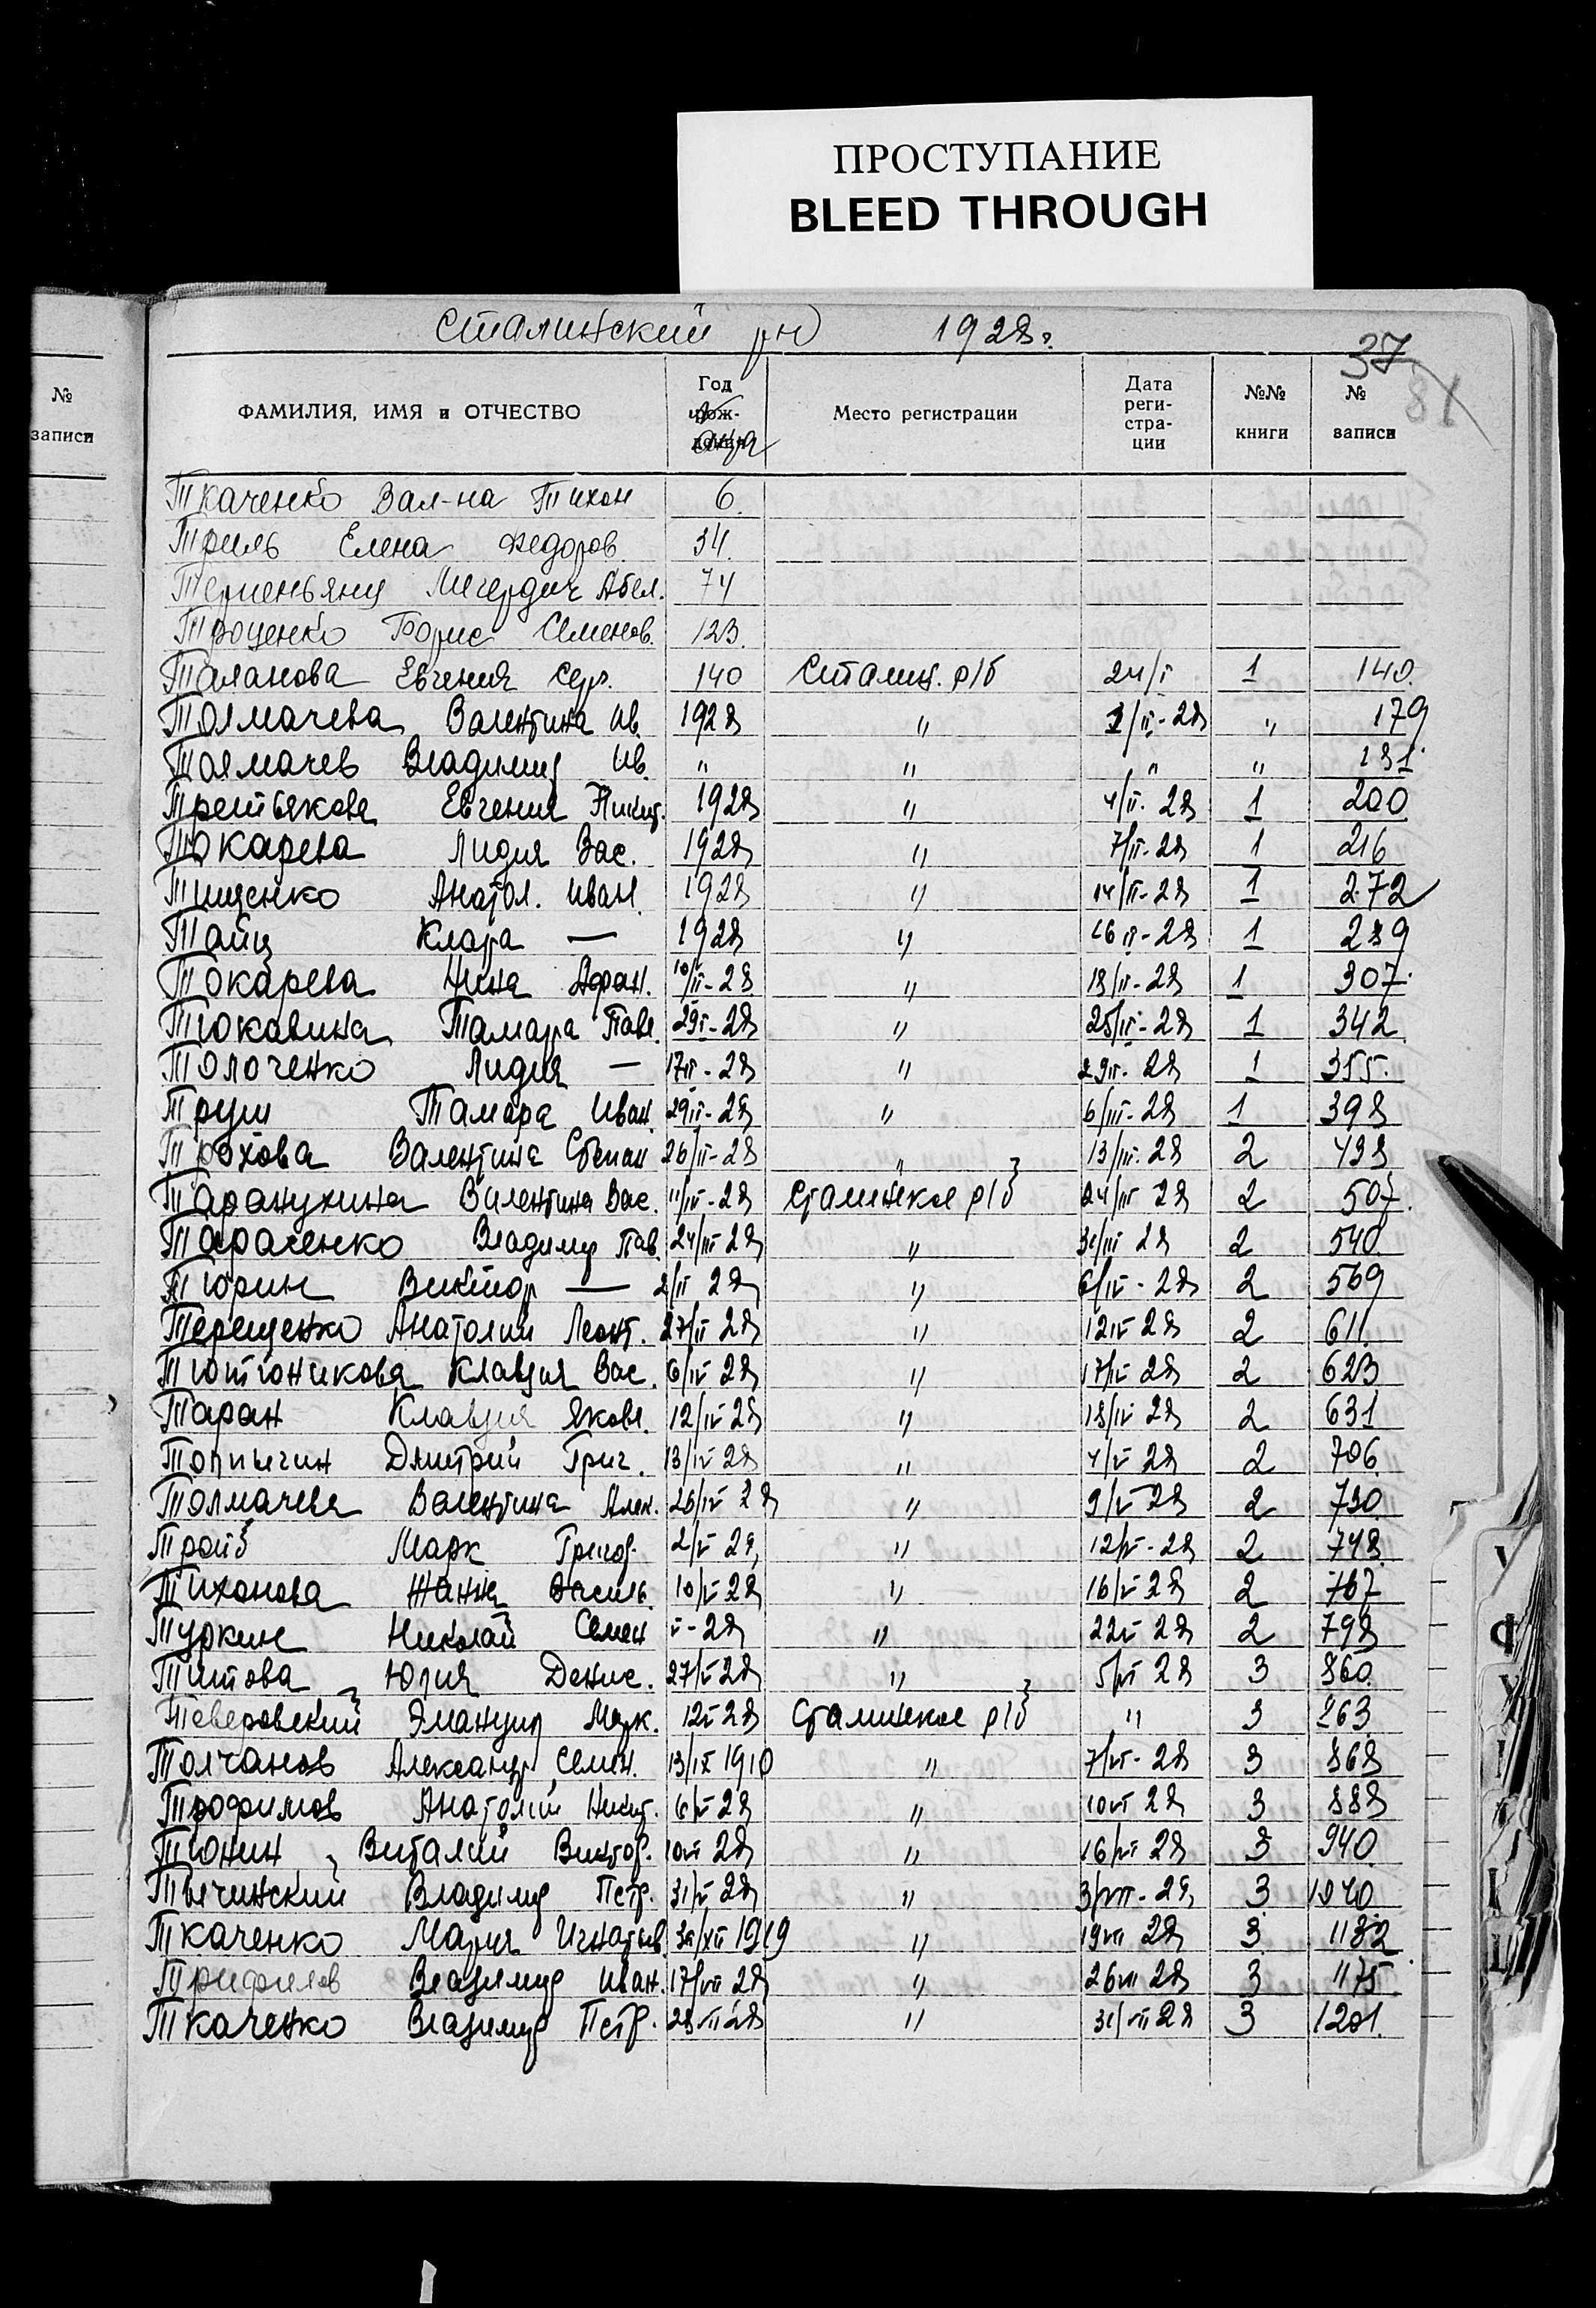 ПРОСТУПАНИЕ
BLEED THROUGH
Сталинский рн 1928г.
37
81
№ записи
ФАМИЛИЯ, ИМЯ и ОТЧЕСТВО Год рождения Место регистрации Дата регистрации №№ книги № записи
акта
Ткаченко Вал-на Тихон 6.
Триль Елена Федоров 34.
Мегердич Абел. 74
Троценко Борис Семенов. 123.
Таланова Евгения Сер. 140 Сталин. р/б 24/I 1 140.
Толмачева Валентина Ив. 1928 " 2/II-28 " 179
Толмачев Владимир Ив. " " " " 181
Третьякова Евгения Никит. 1928 " 4/II-28 1 200
Токарева Лидия Вас. 1928 " 7/II-28 1 216
Тищенко Анатол. Иван. 1928 " 14/II-28 1 272
Тайц Клара — 1928 " 16 II-28 1 289
Токарева Нина Афан. 10/II-28 " 18/II-28 1 307.
Тюкавина Тамара Павл. 29I-28 " 25/II-28 1 342
Толоченко Лидия — 17II-28 " 29II-28 1 355.
Труш Тамара Иван. 29II-28 " 6/III-28 1 398
Трохова Валентина Степан 26/II-28 " 13/III.28 2 438
Таранухина Валентина Вас. 11/III-28 Сталинское р/б 24/III 28 2 507.
Тарасенко Владимир Пав. 24/III 28 " 31/III 28 2 540
Тюрин Виктор — 2/II 28 " 6/IV-28 2 569
Терещенко Анатолий Леонт. 27/II 28 " 12IV 28 2 611.
Тютюникова Клавдия Вас. 6/IV 28 " 17/IV 28 2 623
Таран Клавдия Яковл. 12/IV 28 " 18/IV 28 2 631
Топчигин Дмитрий Григ. 13/IV 28 " 4/V 28 2 706
Толмачева Валентина Алек. 26/IV 28 " 9/V 28 2 730.
Трайб Марк Григор. 2/V 28 " 12/V-28 2 748.
Тихонова Жанна Василь. 10/V 28 " 16/V 28 2 767
Туркин Николай Семен V-28 " 22V 28 2 798
Титова Юлия Денис. 27/V 28 " 5/VI 28 3 860.
Теверовский Эмануил Марк. 12V 28 Сталинское р/б " 3 863
Толчанов Александр Семен. 13/IX 1910 " 7/VI-28 3 868
Трофимов Анатолий Никит. 6/V 28 " 10VI 28 3 888
Тюнин Виталий Виктор. 10VI 28 " 16/VI 28 3 940
Тычинский Владимир Петр. 31/V 28 " 3/VII-28 3 1040
Ткаченко Мария Игнатьев. 1919 " 19VII 28 3 1132
Трифилов Владимир Иван. 17/VII 28 " 26VII 28 3 1175
Ткаченко Владимир Петр. 28 VII 28 " 31/VII 28 3 1201.